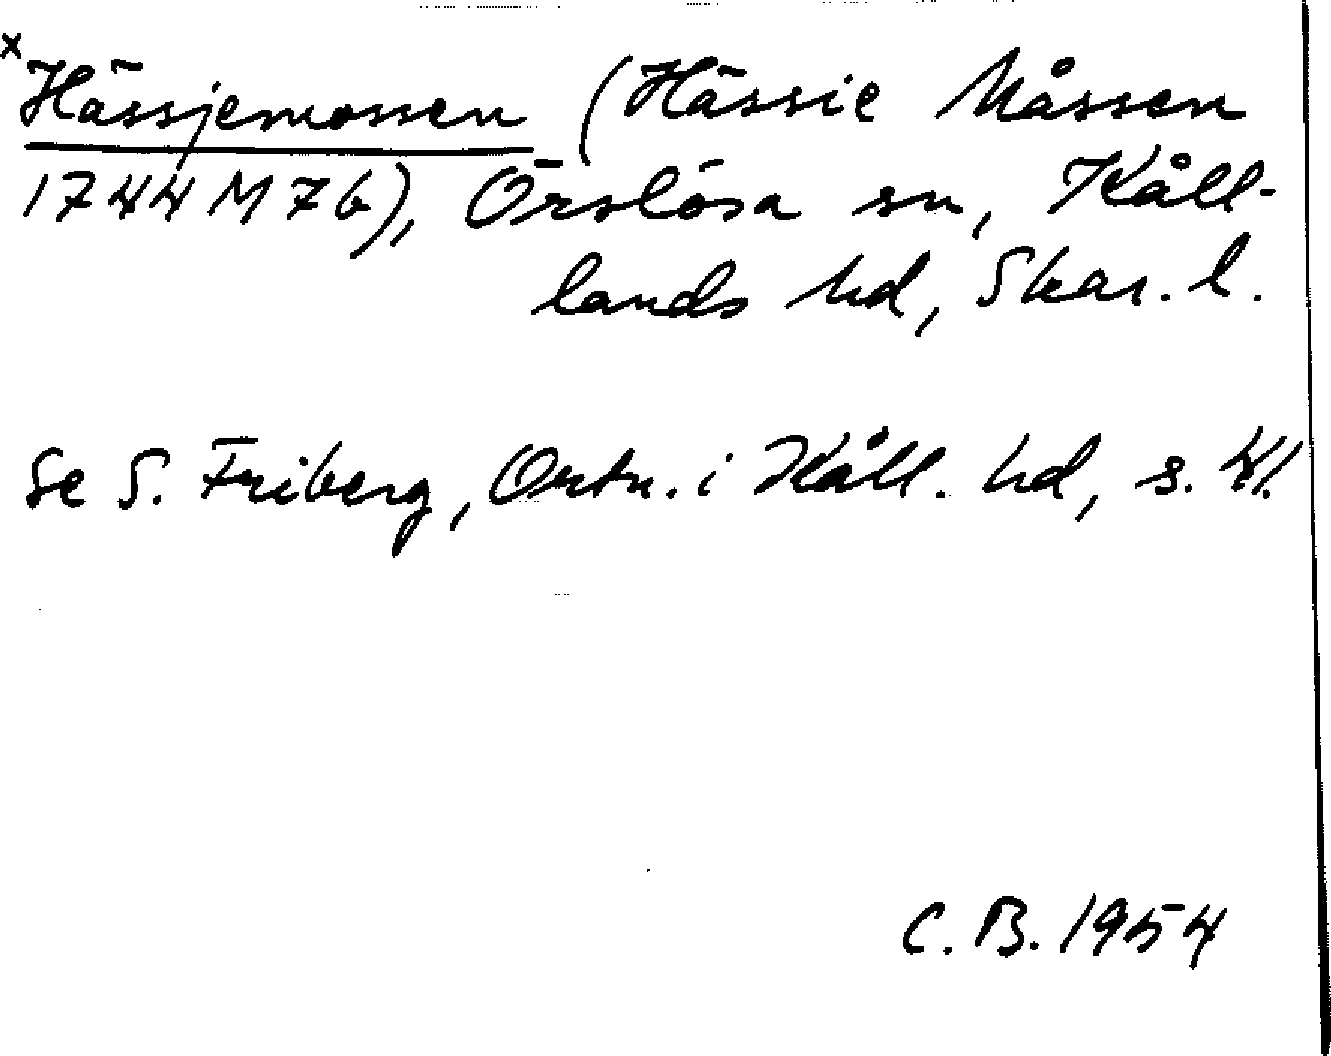 x Hässjemossen (Hässie Måssen
1744 M 76), Örslösa sn, Kåll-
lands hd, Skar. l.
Se S. Friberg, Ortn. i Kåll. hd, s. 41.
C. B. 1954